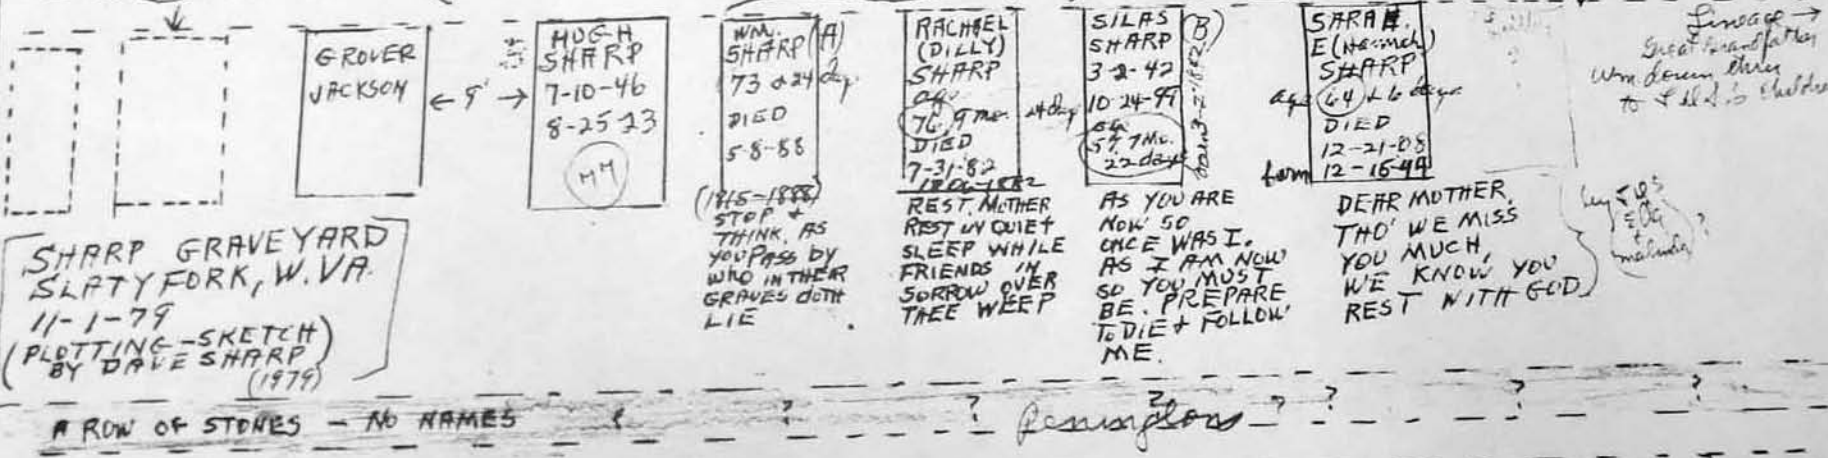 GROVER
JACKSON
← 9' →
HUGH
SHARP
7-10-46
8-25-23
77
WM.
SHARP (A)
73 & 24 dy.
DIED
5-8-88
(1815-1888)
STOP &
THINK, AS
YOU PASS BY
WHO IN THEIR
GRAVES DOTH
LIE
RACHAEL
(DILLY)
SHARP
age
76, 9 mo. 24 dy
DIED
7-31-82
1806-1882
REST, MOTHER
REST IN QUIET
SLEEP WHILE
FRIENDS IN
SORROW OVER
THEE WEEP
SILAS (B)
SHARP
3-2-42
10-24-99
57, 7 Mo.
22 days
born 3-2-1842
AS YOU ARE
NOW SO
ONCE WAS I.
AS I AM NOW
SO YOU MUST
BE. PREPARE
TO DIE & FOLLOW
ME.
SARAH.
E (Hannah)
SHARP
age 64 & 6 days
DIED
12-21-08
born 12-15-44
DEAR MOTHER,
THO' WE MISS
YOU MUCH,
WE KNOW YOU
REST WITH GOD
Lineage →
Great Grandfather
Wm. down thru
to
SHARP GRAVEYARD
SLATYFORK, W.VA.
11-1-79
(PLOTTING-SKETCH
BY DAVE SHARP)
(1979)
A ROW OF STONES - NO NAMES ? ? ? ? ? ? ? ?
Peningtons